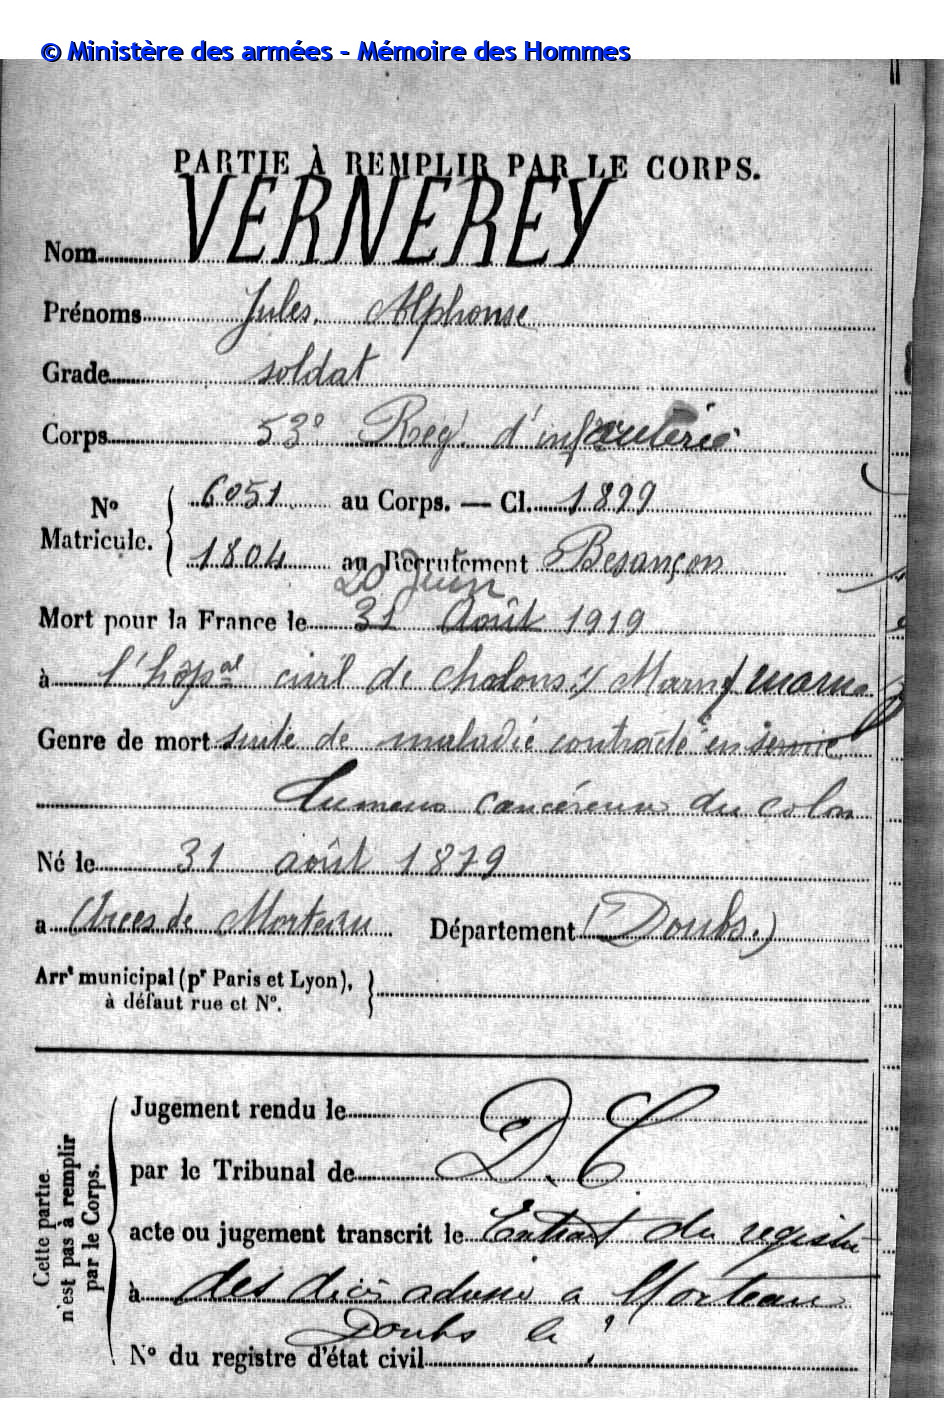 © Ministère des armées - Mémoire des Hommes
PARTIE À REMPLIR PAR LE CORPS.
Nom VERNEREY
Prénoms Jules, Alphonse
Grade soldat
Corps 53e Reg. d'infanterie
No Matricule. 6051 au Corps. — Cl. 1899
1804 au Recrutement Besançon
20 Juin
Mort pour la France le 31 Août 1919
à l'hôpal civil de chalons s/ Marne marne
Genre de mort suite de maladie contracté en service
Tumeur cancéreuse du colon
Né le 31 août 1879
a de Morteau Département (Doubs.)
Arrt municipal (pr Paris et Lyon),
à défaut rue et No.
Cette partie n'est pas à remplir par le Corps.
Jugement rendu le D.C
par le Tribunal de
acte ou jugement transcrit le Extrait du registre
à des décès adressé a Morteau
Doubs le
No du registre d'état civil